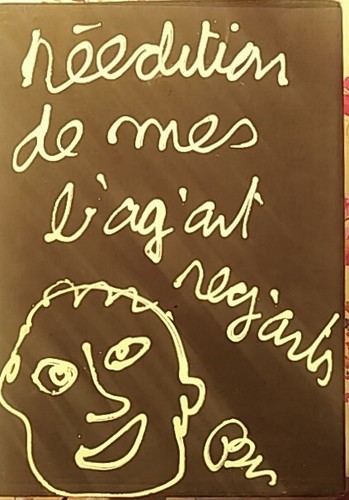 réedition
de mes
l'ag'art
reg'arts
Ben